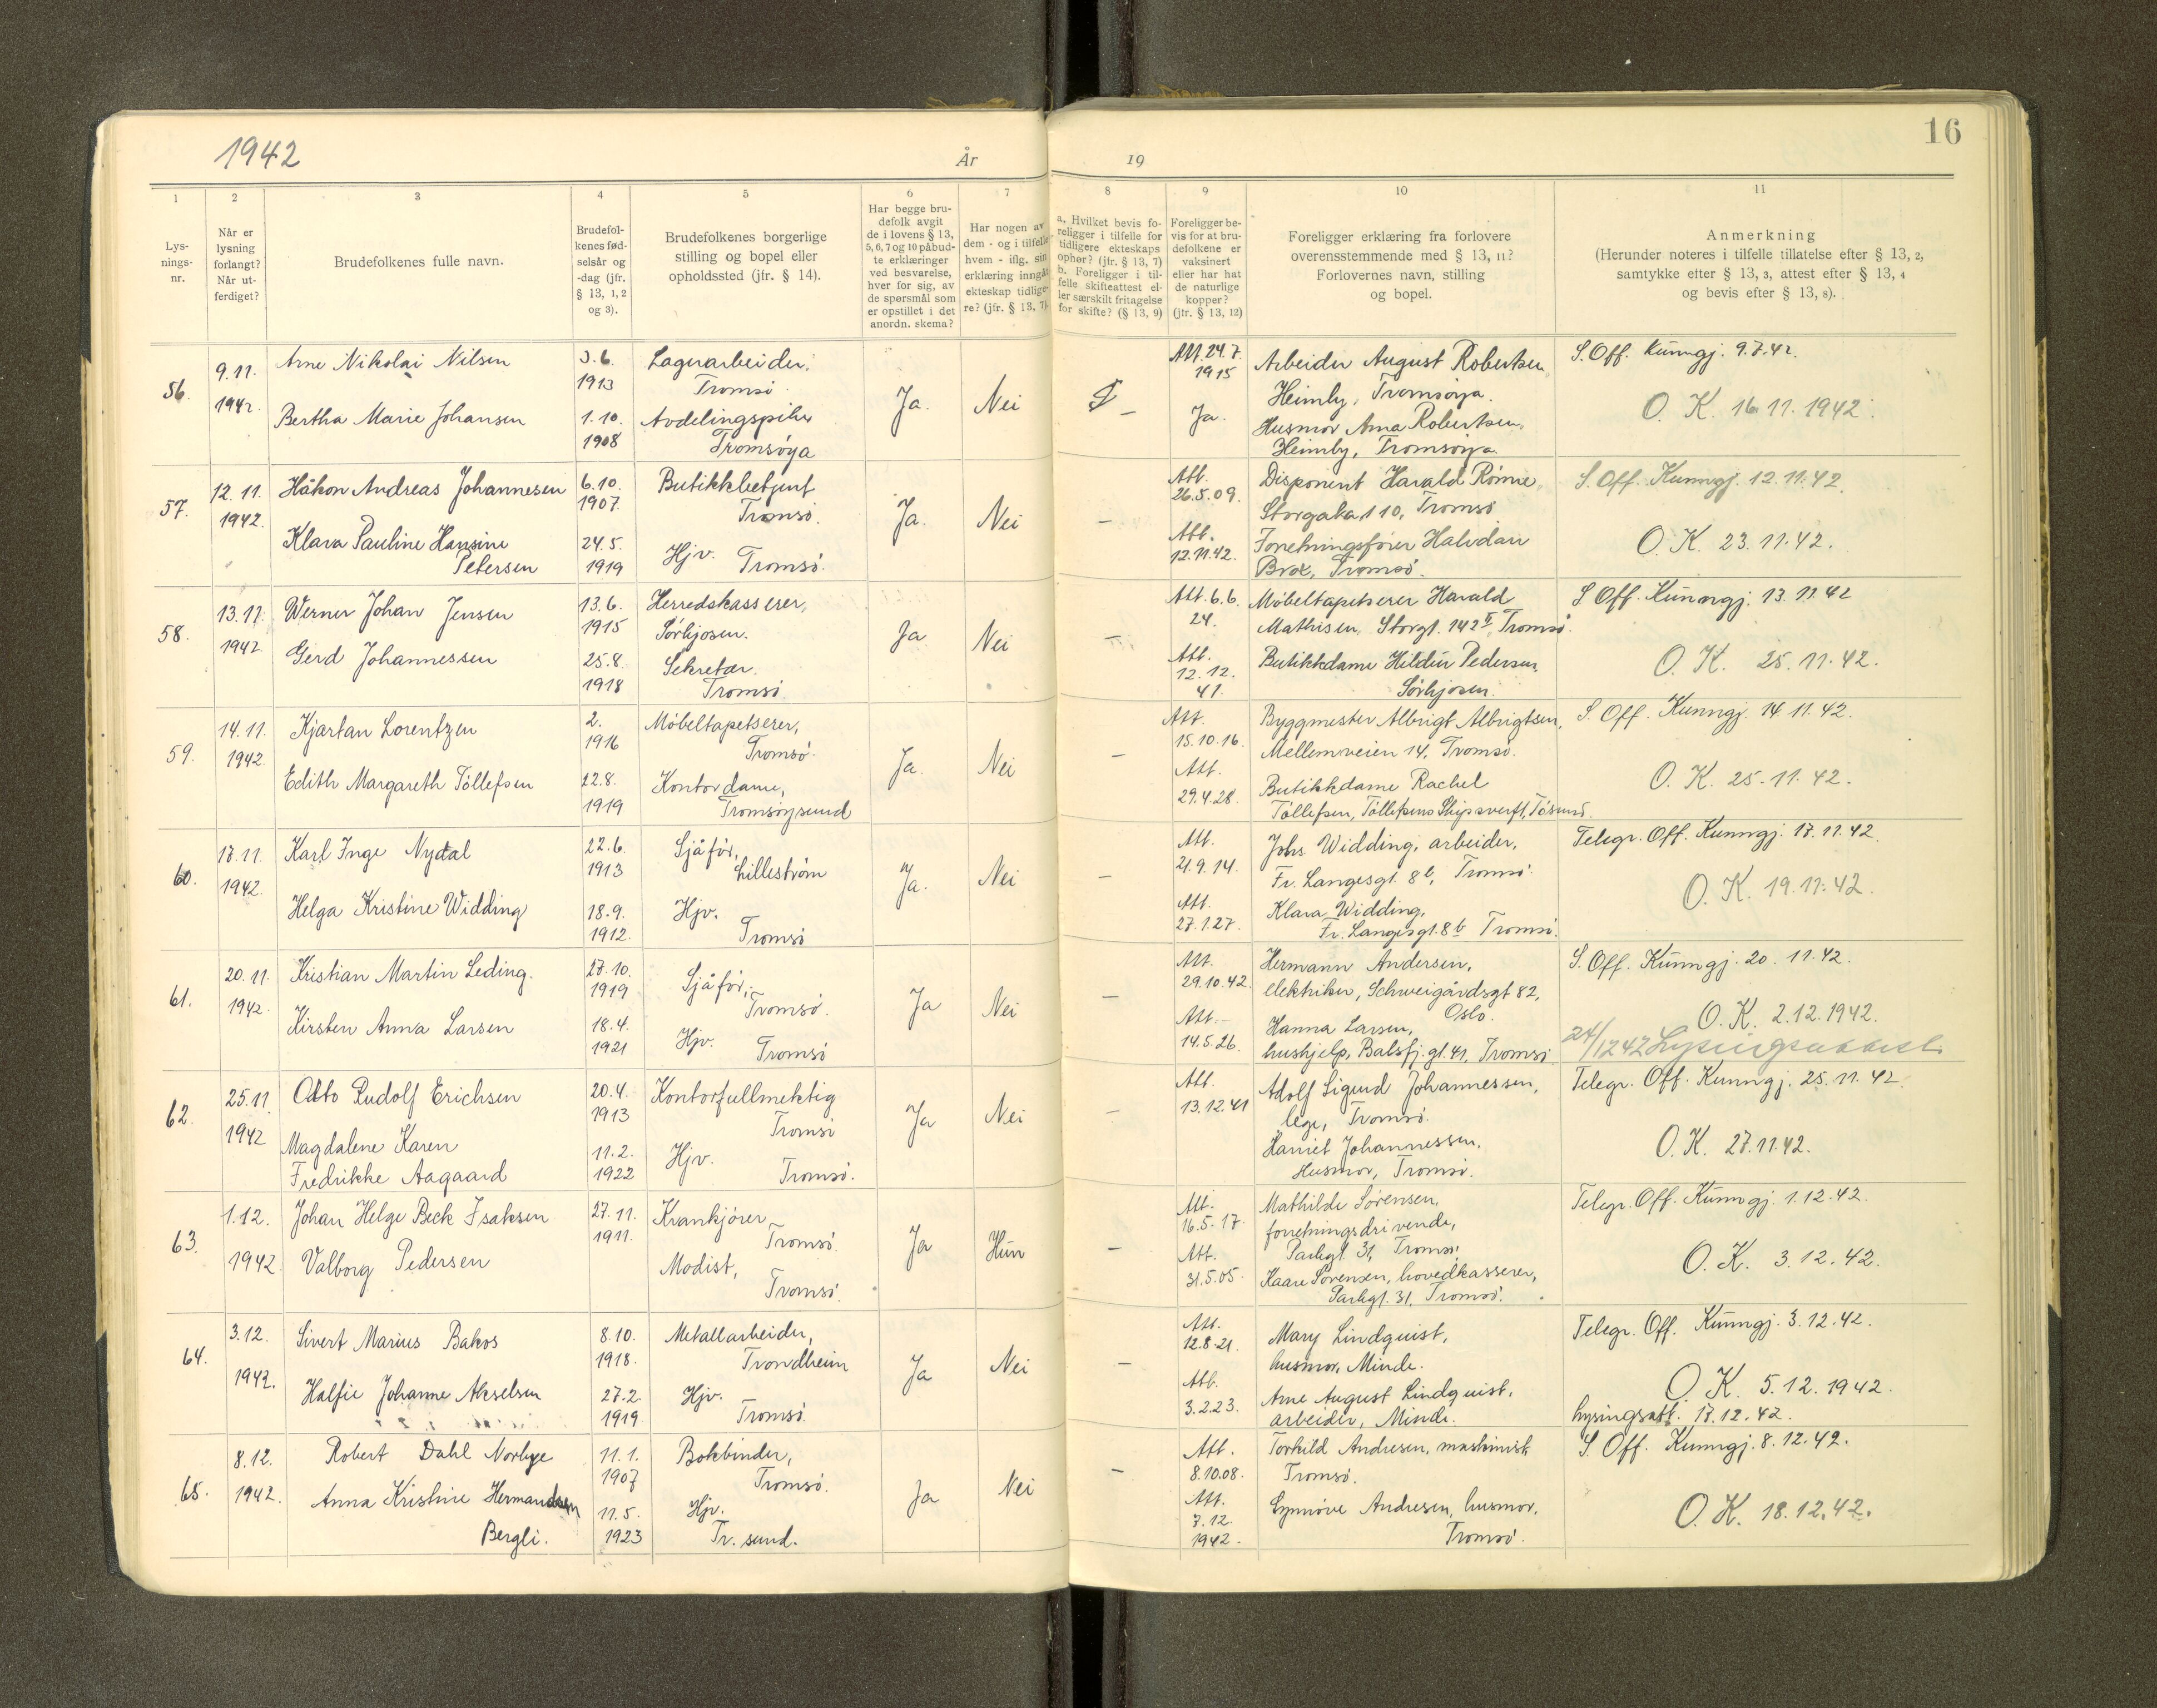 1942
År
19
16
1
2
3
4
5
6
7
8
9
10
11
Lys-
nings-
nr.
Når er
lysning
forlangt?
Når ut-
ferdiget?
Brudefolkenes fulle navn.
Brudefol-
kenes fød-
selsår og
-dag (jfr.
§ 13, 1, 2
og 3).
Brudefolkenes borgerlige
stilling og bopel eller
opholdssted (jfr. § 14).
Har begge bru-
defolk avgit
de i lovens § 13,
5, 6, 7 og 10 påbud-
te erklæringer
ved besvarelse,
hver for sig, av
de spørsmål som
er opstillet i det
anordn. skema?
Har nogen av
dem - og i tilfelle
hvem - iflg. sin
erklæring inngåt
ekteskap tidlige-
re? (jfr. § 13, 7).
a. Hvilket bevis fo-
religger i tilfelle for
tidligere ekteskaps
ophør? (jfr. § 13, 7)
b. Foreligger i til-
felle skifteattest el-
ler særskilt fritagelse
for skifte? (§ 13, 9)
Foreligger be-
vis for at bru-
defolkene er
vaksinert
eller har hat
de naturlige
kopper?
(jfr. § 13, 12)
Foreligger erklæring fra forlovere
overensstemmende med § 13, 11?
Forlovernes navn, stilling
og bopel.
Anmerkning
(Herunder noteres i tilfelle tillatelse efter § 13, 2,
samtykke efter § 13, 3, attest efter § 13, 4
og bevis efter § 13, 8).
56.
9.11.
1942.
Arne Nikolai Nilsen
Bertha Marie Johansen
3.6.
1913
1.10.
1908
Lagerarbeider.
Tromsø
Avdelingspike
Tromsøya
Ja.
Nei
–
Att. 24.7.
1915
Ja.
Arbeider August Robertsen,
Heimly, Tromsøya.
Husmor Anna Robertsen,
Heimly, Tromsøya.
S. Off. Kunngj. 9.7.42.
O. K. 16.11.1942.
57.
12.11.
1942.
Håkon Andreas Johannesen
Klara Pauline Hansine
Petersen
6.10.
1907.
24.5.
1919
Butikkbetjent
Tromsø.
Hjv. Tromsø.
Ja.
Nei
–
Att.
26.5.09.
Att.
12.11.42.
Disponent Harald Rømie,
Storgata 110, Tromsø
Forretningsfører Halvdan
Brox, Tromsø.
S. Off. Kunngj. 12.11.42.
O. K. 23.11.42.
58.
13.11
1942
Werner Johan Jensen
Gerd Johannessen
13.6.
1915
25.8.
1918
Herredskasserer,
Sørkjosen.
Sekretær.
Tromsø.
Ja
Nei
–
Att. 6.6.
24.
Att.
12.12.
41.
Møbeltapetserer Harald
Mathisen, Storgt. 142 II, Tromsø.
Butikkdame Hildur Pedersen,
Sørkjosen.
S Off. Kunngj. 13.11.42
O. K. 25.11.42.
59.
14.11.
1942.
Kjartan Lorentzen
Edith Margareth Tollefsen
2.
1916
12.8.
1919
Møbeltapetserer,
Tromsø.
Kontordame,
Tromsøysund
Ja.
Nei
–
Att.
15.10.16.
Att.
29.4.28.
Byggmester Albrigt Albrigtsen,
Mellemveien 14, Tromsø.
Butikkdame Rachel
Tollefsen, Tollefsens Skipsverft, Tøsund.
S. Off. Kunngj. 14.11.42.
O. K. 25.11.42.
60.
17.11.
1942.
Karl Inge Nydal
Helga Kristine Widding
22.6.
1913
18.9.
1912.
Sjåfør,
Lillestrøm
Hjv.
Tromsø
Ja.
Nei
–
Att.
21.9.14.
Att.
27.1.27.
Johs Widding, arbeider,
Fr. Langesgt. 8b, Tromsø.
Klara Widding,
Fr. Langesgt. 8b Tromsø.
Telegr. Off. Kunngj. 17.11.42.
O. K. 19.11.42.
61.
20.11.
1942.
Kristian Martin Leding.
Kirsten Anna Larsen
27.10.
1919
18.4.
1921
Sjåfør,
Tromsø.
Hjv.
Tromsø
Ja
Nei
–
Att.
29.10.42.
Att.
14.5.26.
Hermann Andersen,
elektriker, Schweigårdsgt 82,
Oslo.
Hanna Larsen,
hushjelp, Balsfj. gt. 41, Tromsø
S. Off. Kunngj. 20.11.42.
O. K. 2.12.1942.
24/1242 Lysingsattest
62.
25.11.
1942
Otto Rudolf Erichsen
Magdalene Karen
Fredrikke Aagaard
20.4.
1913
11.2.
1922
Kontorfullmektig
Tromsø
Hjv.
Tromsø.
Ja
Nei
–
Att.
13.12.41
Adolf Sigurd Johannessen,
lege, Tromsø.
Harriet Johannessen,
Husmor, Tromsø.
Telegr. Off. Kunngj. 25.11.42.
O. K. 27.11.42.
63.
1.12.
1942
Johan Helge Beck Isaksen
Valborg Pedersen
27.11.
1911.
Krankjører
Tromsø.
Modist,
Tromsø.
Ja
Hun
–
Att.
16.5.17.
Att.
31.5.05.
Mathilde Sørensen,
forretningsdrivende,
Parkgt 31, Tromsø.
Kaare Sørensen, hovedkasserer,
Parkgt. 31, Tromsø.
Telegr. Off. Kunngj. 1.12.42.
O. K. 3.12.42.
64.
3.12.
1942.
Sivert Marius Bakos
Halfie Johanne Akselsen
8.10.
1918.
27.2.
1919
Metallarbeider,
Trondheim
Hjv.
Tromsø.
Ja
Nei
–
Att.
12.8.21.
Att.
3.2.23.
Mary Lindquist,
husmor, Minde.
Arne August Lindquist,
arbeider, Minde.
Telegr. Off. Kunngj. 3.12.42.
O. K. 5.12.1942.
lysingsatt. 17.12.42.
65.
8.12.
1942.
Robert Dahl Norbye
Anna Kristine Hermandsen
Bergli.
11.1.
1907
11.5.
1923
Bokbinder,
Tromsø.
Hjv.
Tr. sund.
Ja
Nei
–
Att.
8.10.08.
Att.
7.12.
1942.
Torkild Andresen, maskinist
Tromsø.
Synnøve Andresen, husmor,
Tromsø.
S. Off. Kunngj. 8.12.42.
O. K. 18.12.42.